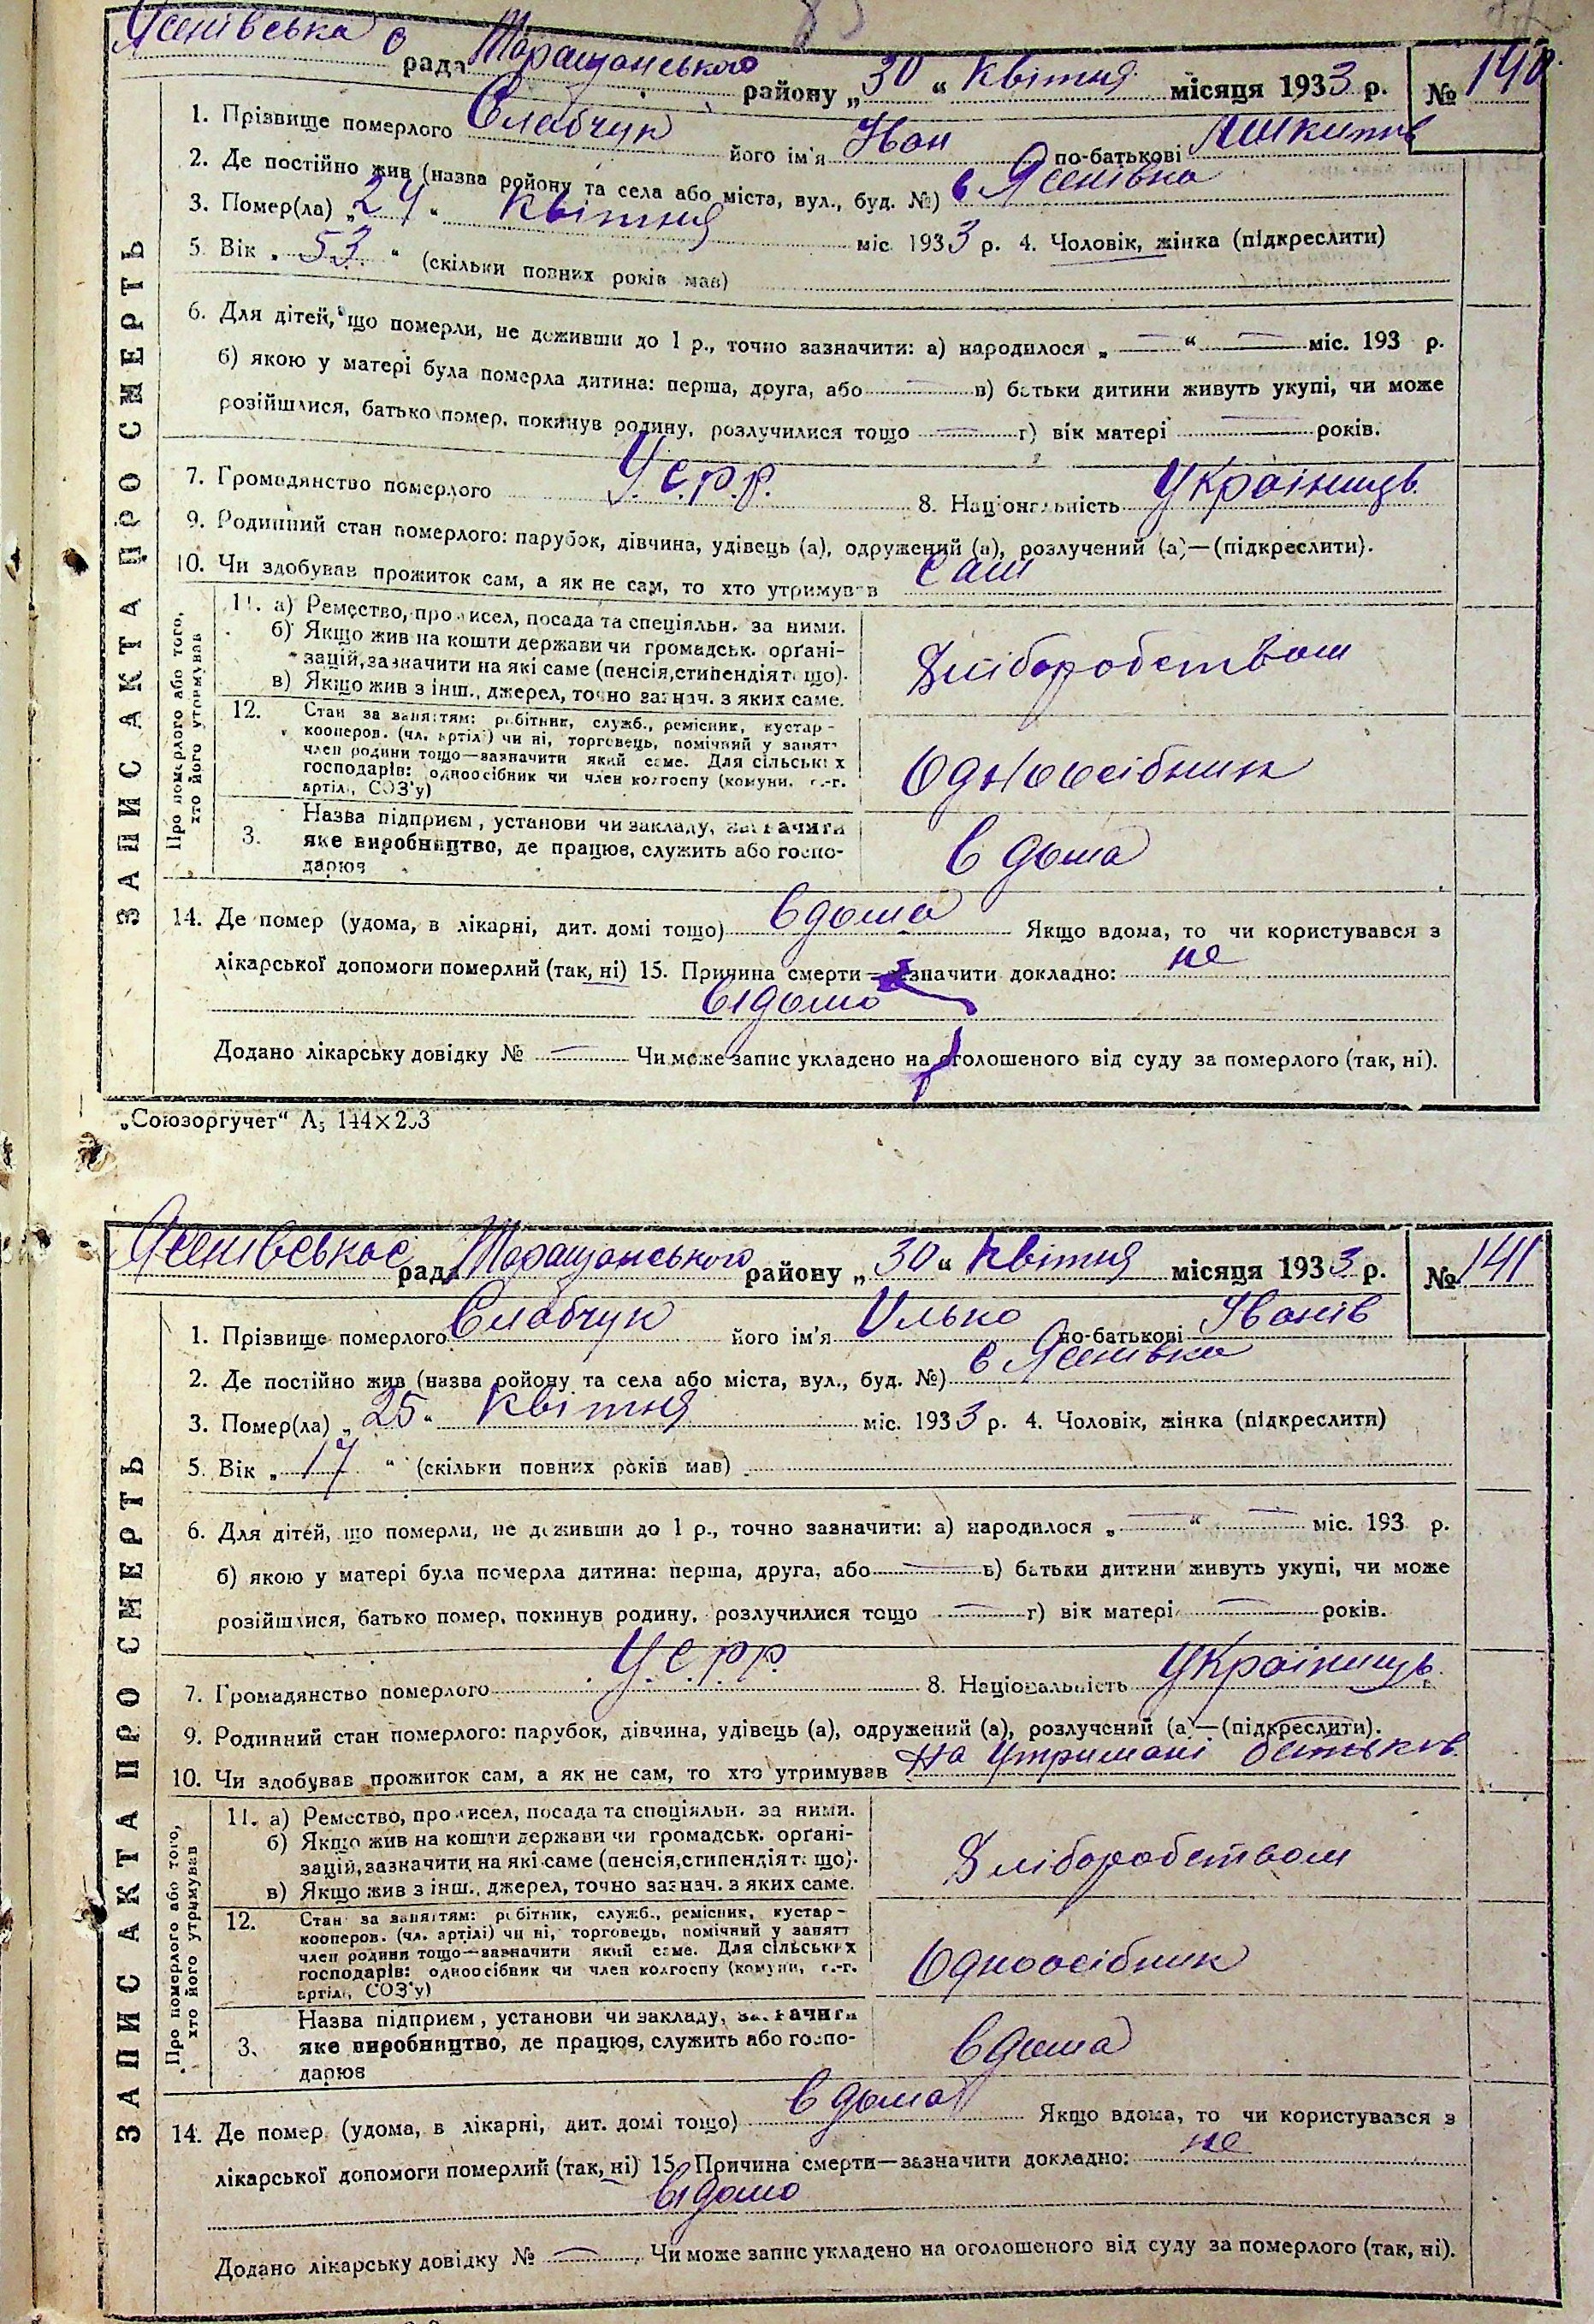 Ясенівська с рада Таращанського району „30“ Квітня місяця 1933 р. № 140
1. Прізвище померлого Слабчук його ім'я Іван по-батькові
2. Де постійно жив (назва ройону та села або міста, вул., буд. №) с Ясенівка
3. Помер(ла) „24“ Квітня міс. 1933 р. 4. Чоловік, жінка (підкреслити)
5. Вік „53“ (скільки повних років мав)
6. Для дітей, що померли, не доживши до 1 р., точно зазначити: а) народилося „—“ — міс. 193 р.
б) якою у матері була померла дитина: перша, друга, або — в) батьки дитини живуть укупі, чи може
розійшлися, батько помер, покинув родину, розлучилися тощо — г) вік матері — років.
7. Громадянство померлого У.С.Р.Р. 8. Національність Українець
9. Родинний стан померлого: парубок, дівчина, удівець (а), одружений (а), розлучений (а)—(підкреслити).
10. Чи здобував прожиток сам, а як не сам, то хто утримував Сам
ЗАПИС АКТА ПРО СМЕРТЬ
Про померлого або того,
хто його утримував
11. а) Ремество, промисел, посада та спеціяльн. за ними.
б) Якщо жив на кошти держави чи громадськ. орґані-
зацій, зазначити на які саме (пенсія, стипендія тощо).
в) Якщо жив з інш., джерел, точно зазнач. з яких саме.
Хліборобством
12. Стан за заняттям: робітник, служб., ремісник, кустар-
кооперов. (чл. артілі) чи ні, торговець, помічний у занятт
член родини тощо—зазначити який саме. Для сільських
господарів: одноосібник чи член колгоспу (комуни, с.-г.
артілі, СОЗ'у)
Одноосібник
3. Назва підприєм, установи чи закладу, зазначити
яке виробництво, де працює, служить або госпо-
дарює
в дома
14. Де помер (удома, в лікарні, дит. домі тощо) вдома Якщо вдома, то чи користувався з
лікарської допомоги померлий (так, ні) 15. Причина смерти—зазначити докладно: не
відомо
Додано лікарську довідку № — Чи може запис укладено на оголошеного від суду за померлого (так, ні).
„Союзоргучет“ А5 144×203
Ясенівської рада Таращанського району „30“ Квітня місяця 1933 р. № 141
1. Прізвище померлого Слабчук його ім'я Илько по-батькові Іванів
2. Де постійно жив (назва ройону та села або міста, вул., буд. №) с Ясенівка
3. Помер(ла) „25“ Квітня міс. 1933 р. 4. Чоловік, жінка (підкреслити)
5. Вік „17“ (скільки повних років мав)
6. Для дітей, що померли, не доживши до 1 р., точно зазначити: а) народилося „—“ — міс. 193 р.
б) якою у матері була померла дитина: перша, друга, або — в) батьки дитини живуть укупі, чи може
розійшлися, батько помер, покинув родину, розлучилися тощо — г) вік матері — років.
7. Громадянство померлого У.С.Р.Р. 8. Національність Українець
9. Родинний стан померлого: парубок, дівчина, удівець (а), одружений (а), розлучений (а)—(підкреслити).
10. Чи здобував прожиток сам, а як не сам, то хто утримував На утримані батьків
ЗАПИС АКТА ПРО СМЕРТЬ
Про померлого або того,
хто його утримував
11. а) Ремество, промисел, посада та спеціяльн. за ними.
б) Якщо жив на кошти держави чи громадськ. орґані-
зацій, зазначити на які саме (пенсія, стипендія тощо).
в) Якщо жив з інш., джерел, точно зазнач. з яких саме.
Хліборобством
12. Стан за заняттям: робітник, служб., ремісник, кустар-
кооперов. (чл. артілі) чи ні, торговець, помічний у занятт
член родини тощо—зазначити який саме. Для сільських
господарів: одноосібник чи член колгоспу (комуни, с.-г.
артілі, СОЗ'у)
Одноосібник
3. Назва підприєм, установи чи закладу, зазначити
яке виробництво, де працює, служить або госпо-
дарює
вдома
14. Де помер (удома, в лікарні, дит. домі тощо) в дома Якщо вдома, то чи користувався з
лікарської допомоги померлий (так, ні) 15. Причина смерти—зазначити докладно: не
відомо
Додано лікарську довідку № — Чи може запис укладено на оголошеного від суду за померлого (так, ні).